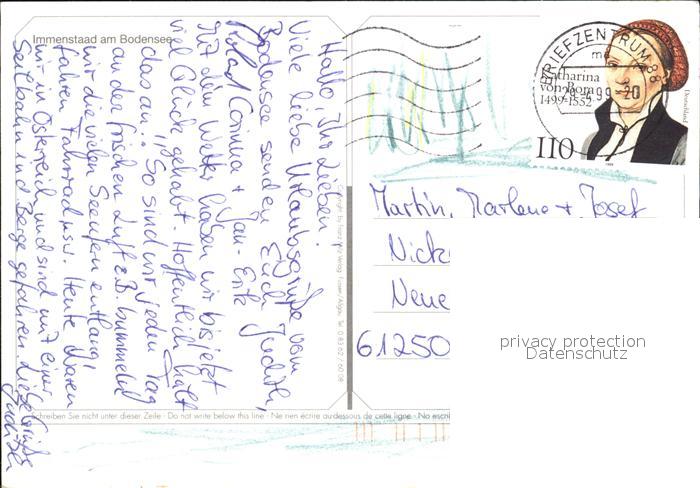 Immenstaad am Bodensee
Hallo Ihr Lieben!
Viele liebe Urlaubsgrüße vom
Bodensee senden Euch Judith,
Corinna + Jan-Erik
Mit dem Wetter haben wir bis jetzt
viel Glück gehabt. Hoffentlich hält
das an! So sind wir jeden Tag
an der frischen Luft z.B. bummeln
wir die vielen Seeufern entlang,
fahren Fahrrad usw. Heute waren
wir in Österreich und sind mit einer
Seilbahn und Berge gefahren. Liebe Grüße
Judith
BRIEFZENTRUM 88
Catharina
von Bora
1499-1552
-20
Deutschland
110
1999
Martin, Marlene + Josef
Nick
Neue
61250
privacy protection
Datenschutz
Schreiben Sie nicht unter dieser Zeile · Do not write below this line · Ne rien écrire au-dessous de cette ligne · No escri